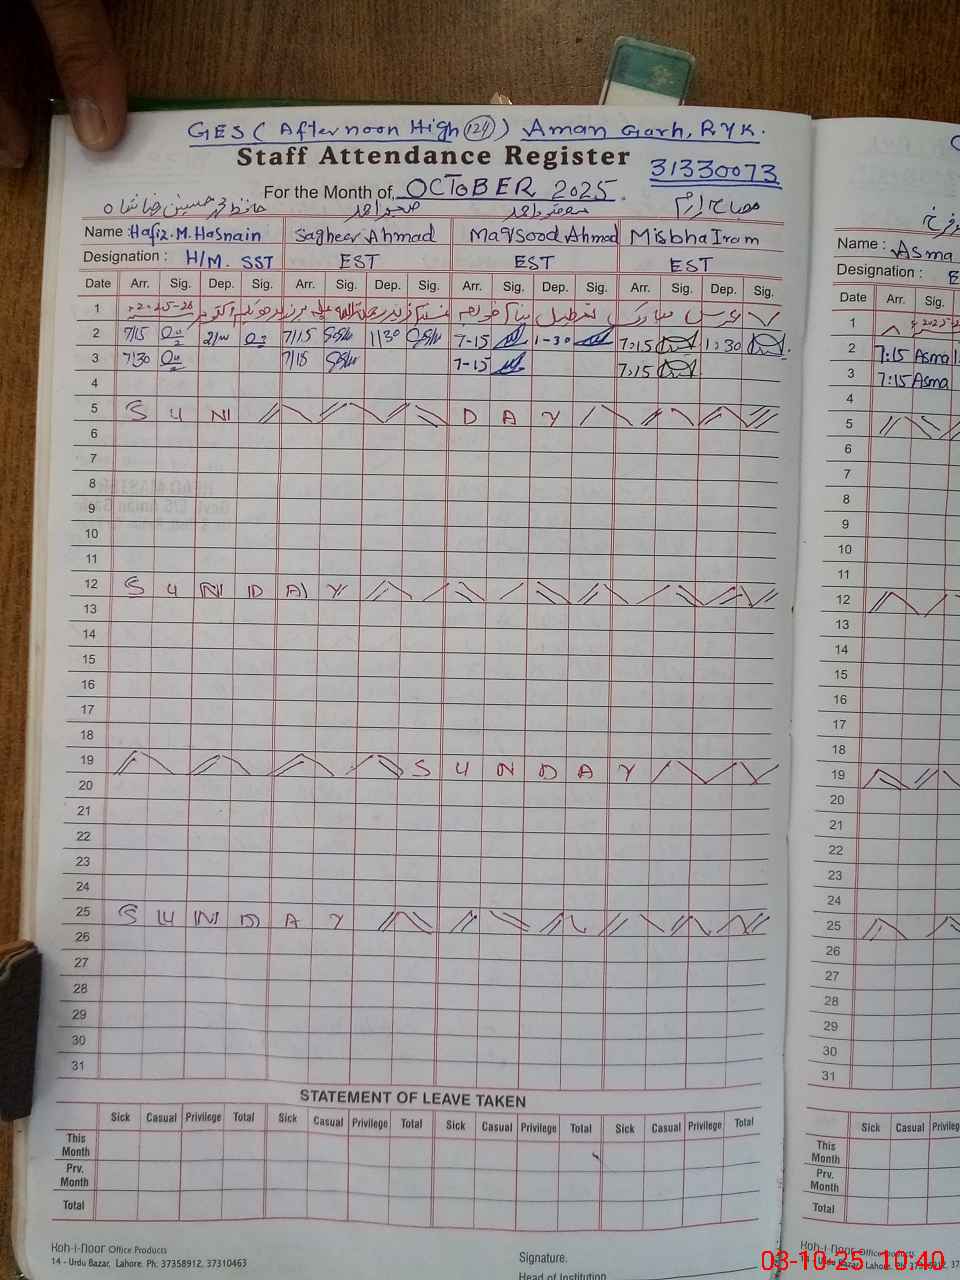 GES ( Afternoon High (124) ) Aman Garh, RYK.
Staff Attendance Register
31330073
For the Month of OCTOBER 2025.
صغیر احمد مقصود احمد مصباح ارم
Name : Hafiz.M.Hasnain Sagheer Ahmad Maqsood Ahmad Misbha Iram
Designation : H/M. SST EST EST EST
Date Arr. Sig. Dep. Sig. Arr. Sig. Dep. Sig. Arr. Sig. Dep. Sig. Arr. Sig. Dep. Sig.
1 عرس مبارک تعطیل
2 7/15 7/15 1/30 7-15 1-30 7:15 1:30
3 7/30 7/15 7-15 7:15
4
5 S U N D A Y
6
7
8
9
10
11
12 S U N D A Y
13
14
15
16
17
18
19 S U N D A Y
20
21
22
23
24
25 S U N D A Y
26
27
28
29
30
31
STATEMENT OF LEAVE TAKEN
Sick Casual Privilege Total Sick Casual Privilege Total Sick Casual Privilege Total Sick Casual Privilege Total
This Month
Prv. Month
Total
Koh-i-noor Office Products
14 - Urdu Bazar, Lahore. Ph: 37358912, 37310463
Signature.
Head of Institution
Name : Asma
Designation :
Date Arr. Sig.
1
2 7:15 Asma
3 7:15 Asma
4
5
6
7
8
9
10
11
12
13
14
15
16
17
18
19
20
21
22
23
24
25
26
27
28
29
30
31
Sick Casual Privilege
This Month
Prv. Month
Total
Koh-i-noor Office Products
14 - Urdu Bazar, Lahore. Ph: 37358912
03-10-25 10:40